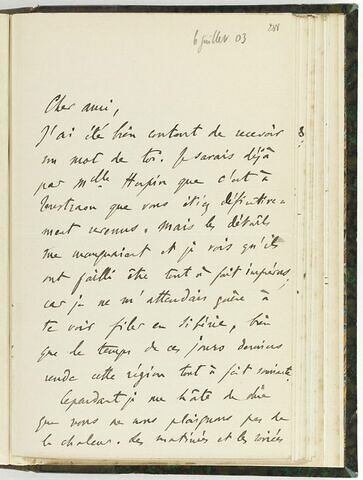 6 juillet 03
288
Cher ami,
J'ai été bien content de recevoir
un mot de toi. Je savais déjà
par Melle Herpin que c'est à
que vous étiez définitive-
ment venus. Mais les détails
me manquaient et je vois qu'ils
ont failli être tout à fait imprévus
car je ne m'attendais guère à
te voir filer en Sibérie, bien
que le temps de ces jours derniers
rende cette région tout à fait
Cependant je me hâte de dire
que nous ne nous plaignons pas de
la chaleur. des matinées et les soirées